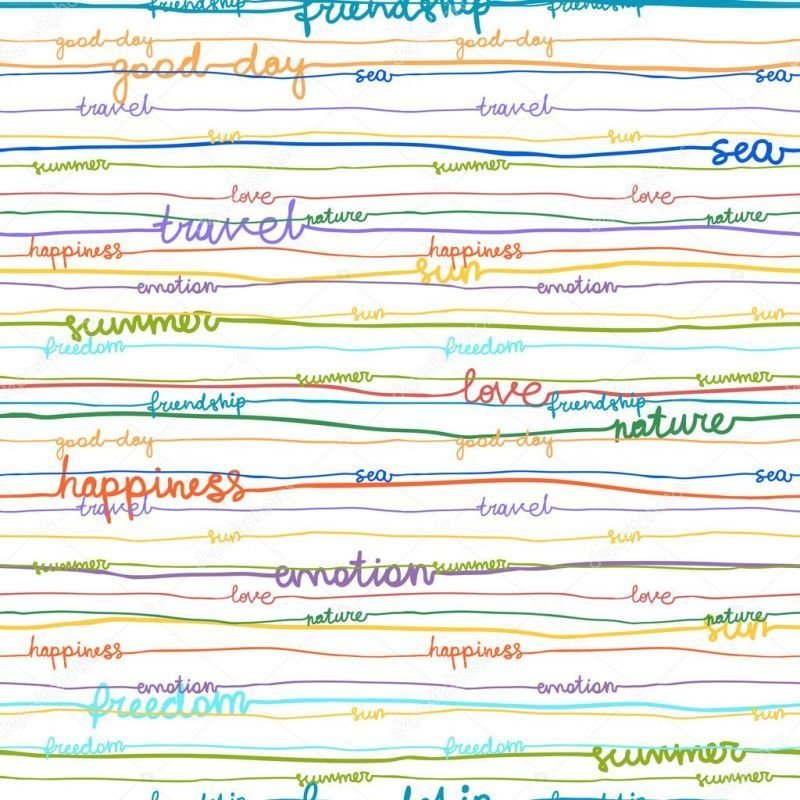 friendship friendship friendship
good day good day
good day sea sea
travel travel
sun sun
sea
summer summer
love love
travel nature nature
happiness happiness
sun
emotion emotion
summer sun sun
freedom freedom
summer summer
love
friendship friendship
nature
good day good day
happiness sea sea
travel travel
sun sun
emotion
summer summer
love love
nature nature
sun
happiness happiness
emotion emotion
freedom
sun sun
freedom freedom
summer
summer summer
friendship friendship friendship